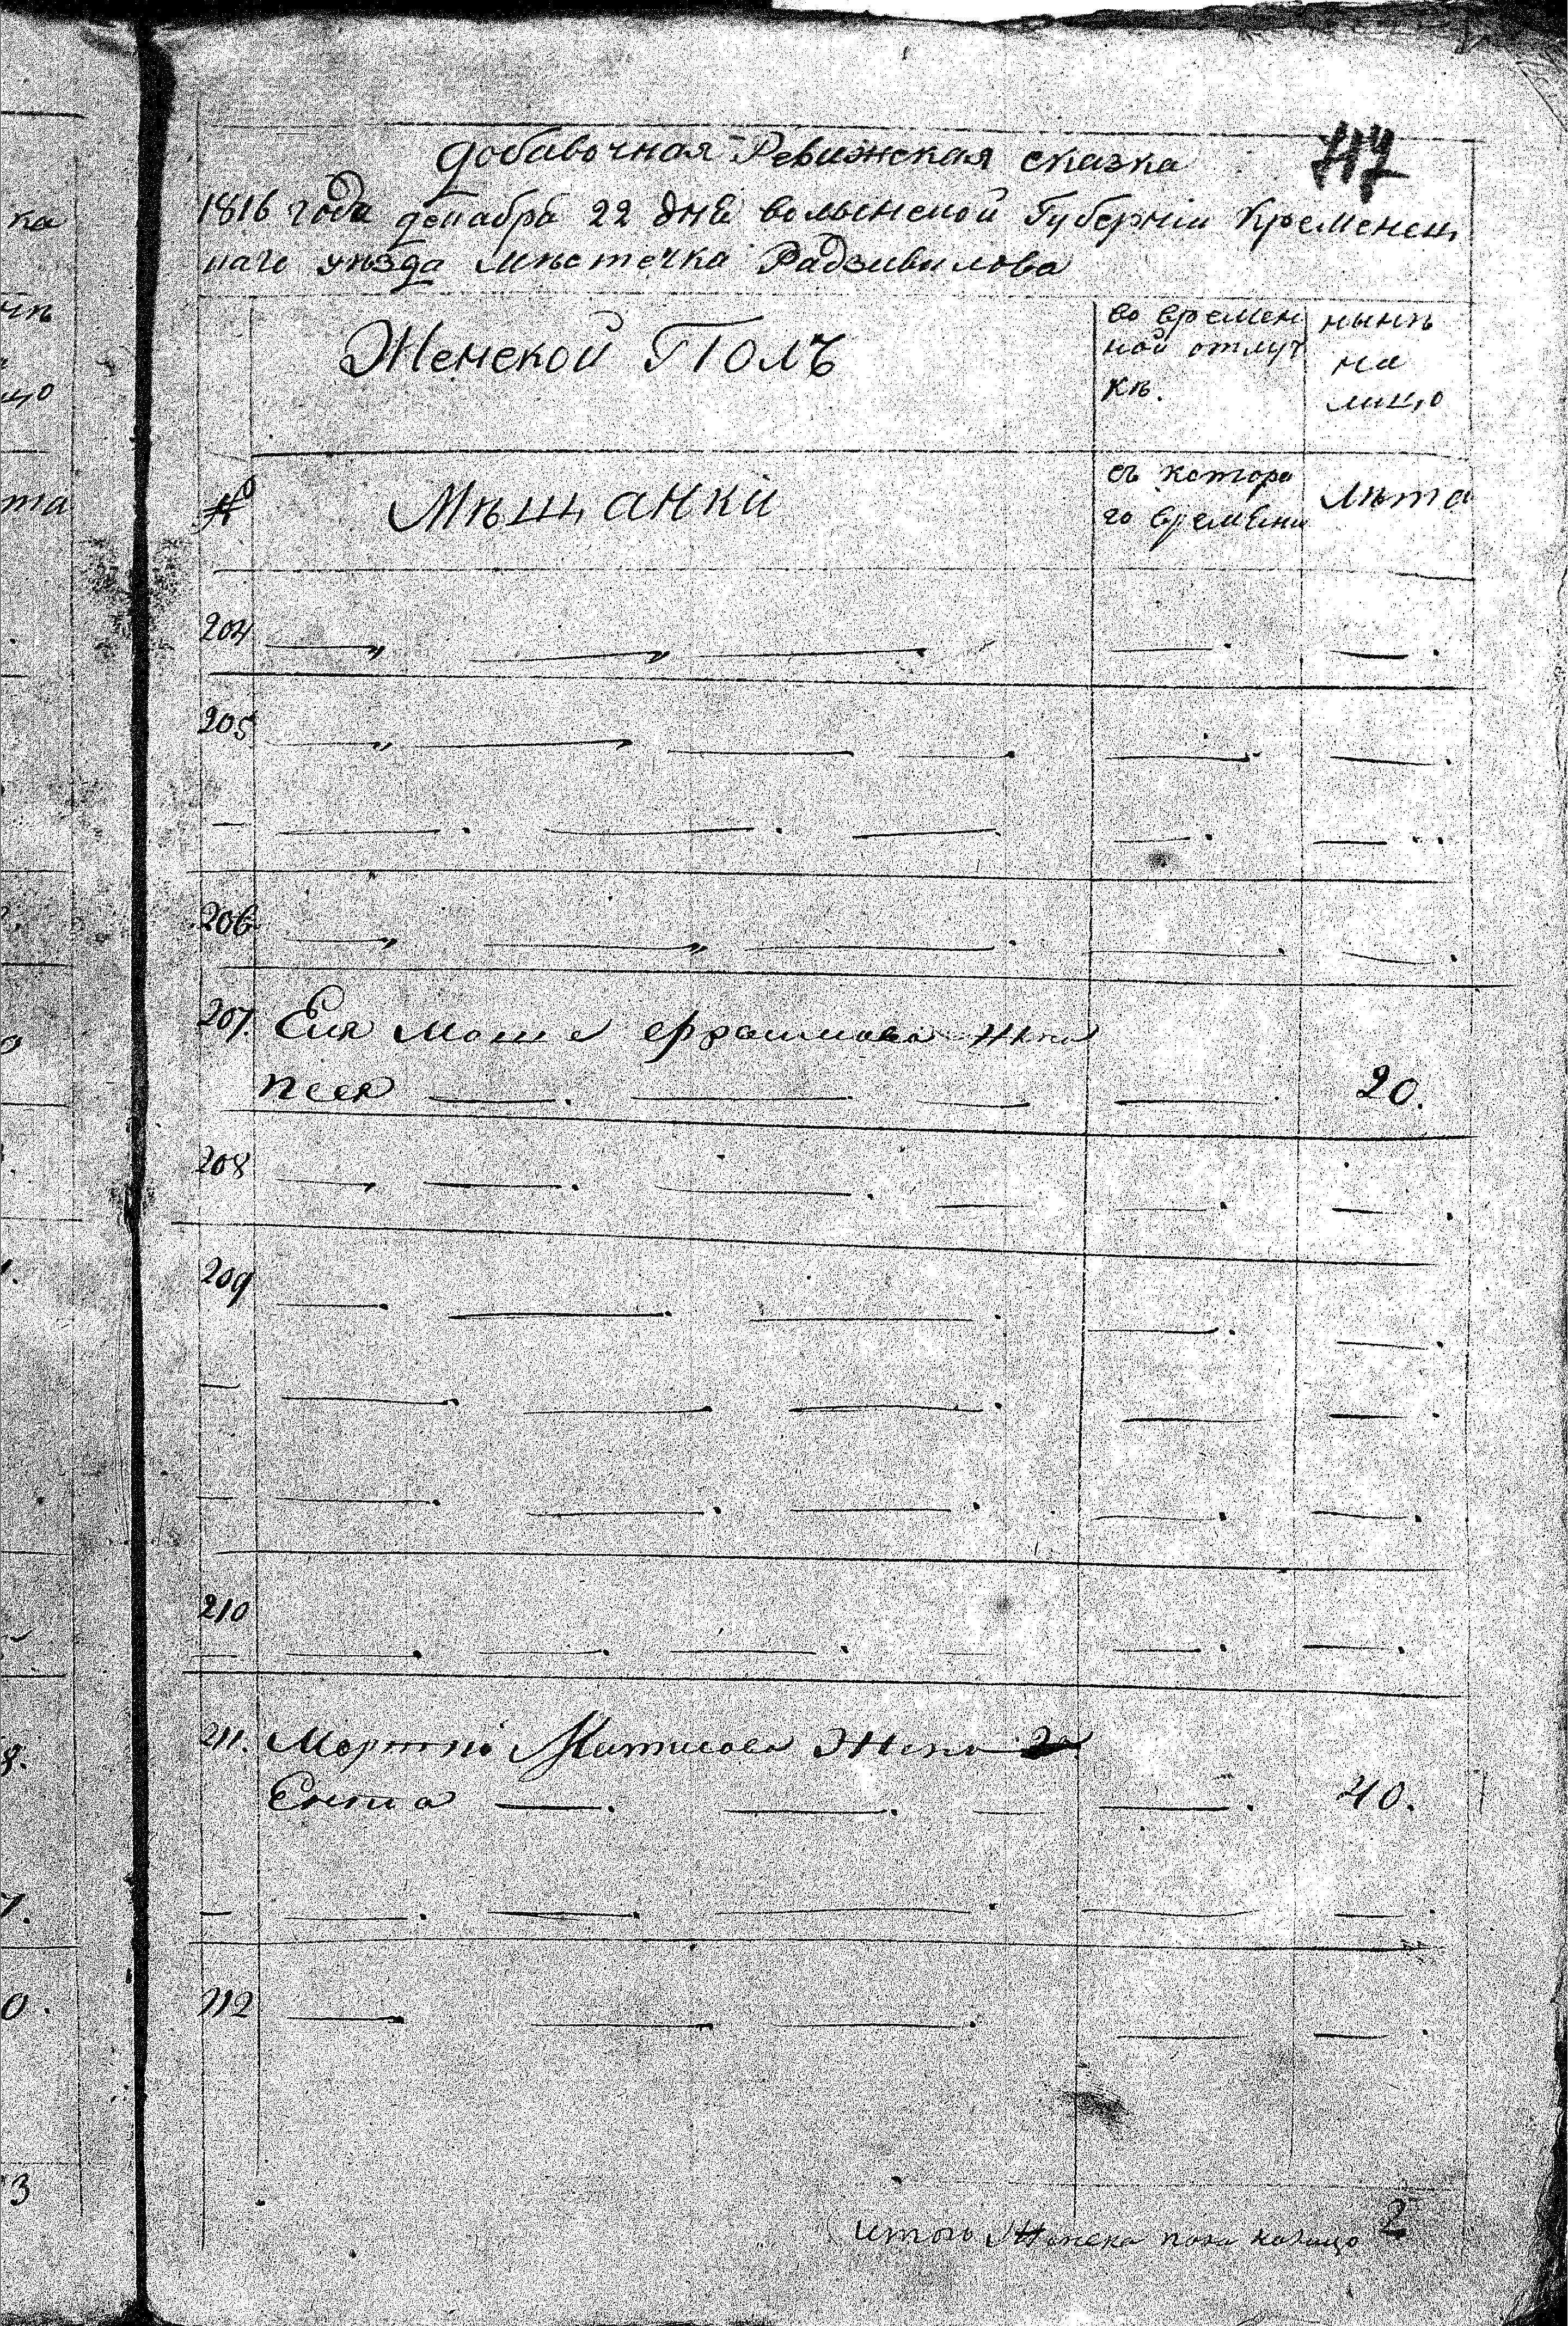 117
добавочная Ревижская сказка
1816 года декабра 22 дня волынской Губерніи Кременец
каго уезда мѣстечка Радзивилова
Женской Полъ
во времен
ной отлуч
кѣ.
нынѣ
на
лицо
№
Мѣщанки
съ которо
го времени
лѣта
204
205
206
207. Еия Мошe ефраимова жна
песя 20.
208
209
210
211. Мартка Матисова жена
Ента 40.
212
итого Женска пола налицо 2